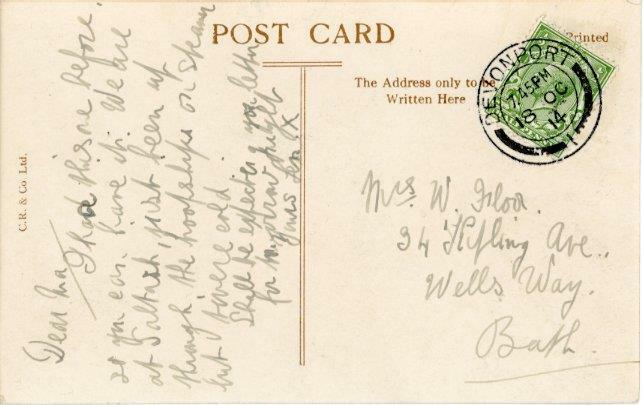 POST CARD
Printed
The Address only to be
Written Here
DEVONPORT
7.45PM
18 OC
14
C.R. & Co Ltd.
Dear Ma
I had this one before.
so you can have it. We are
at Saltash, just been up
through the troopships on steamer
but towere cold.
Shall be expecting your letter
for tomorrow night
Yours Len X
Mrs W.
34 Kipling Ave.
Wells Way.
Bath.